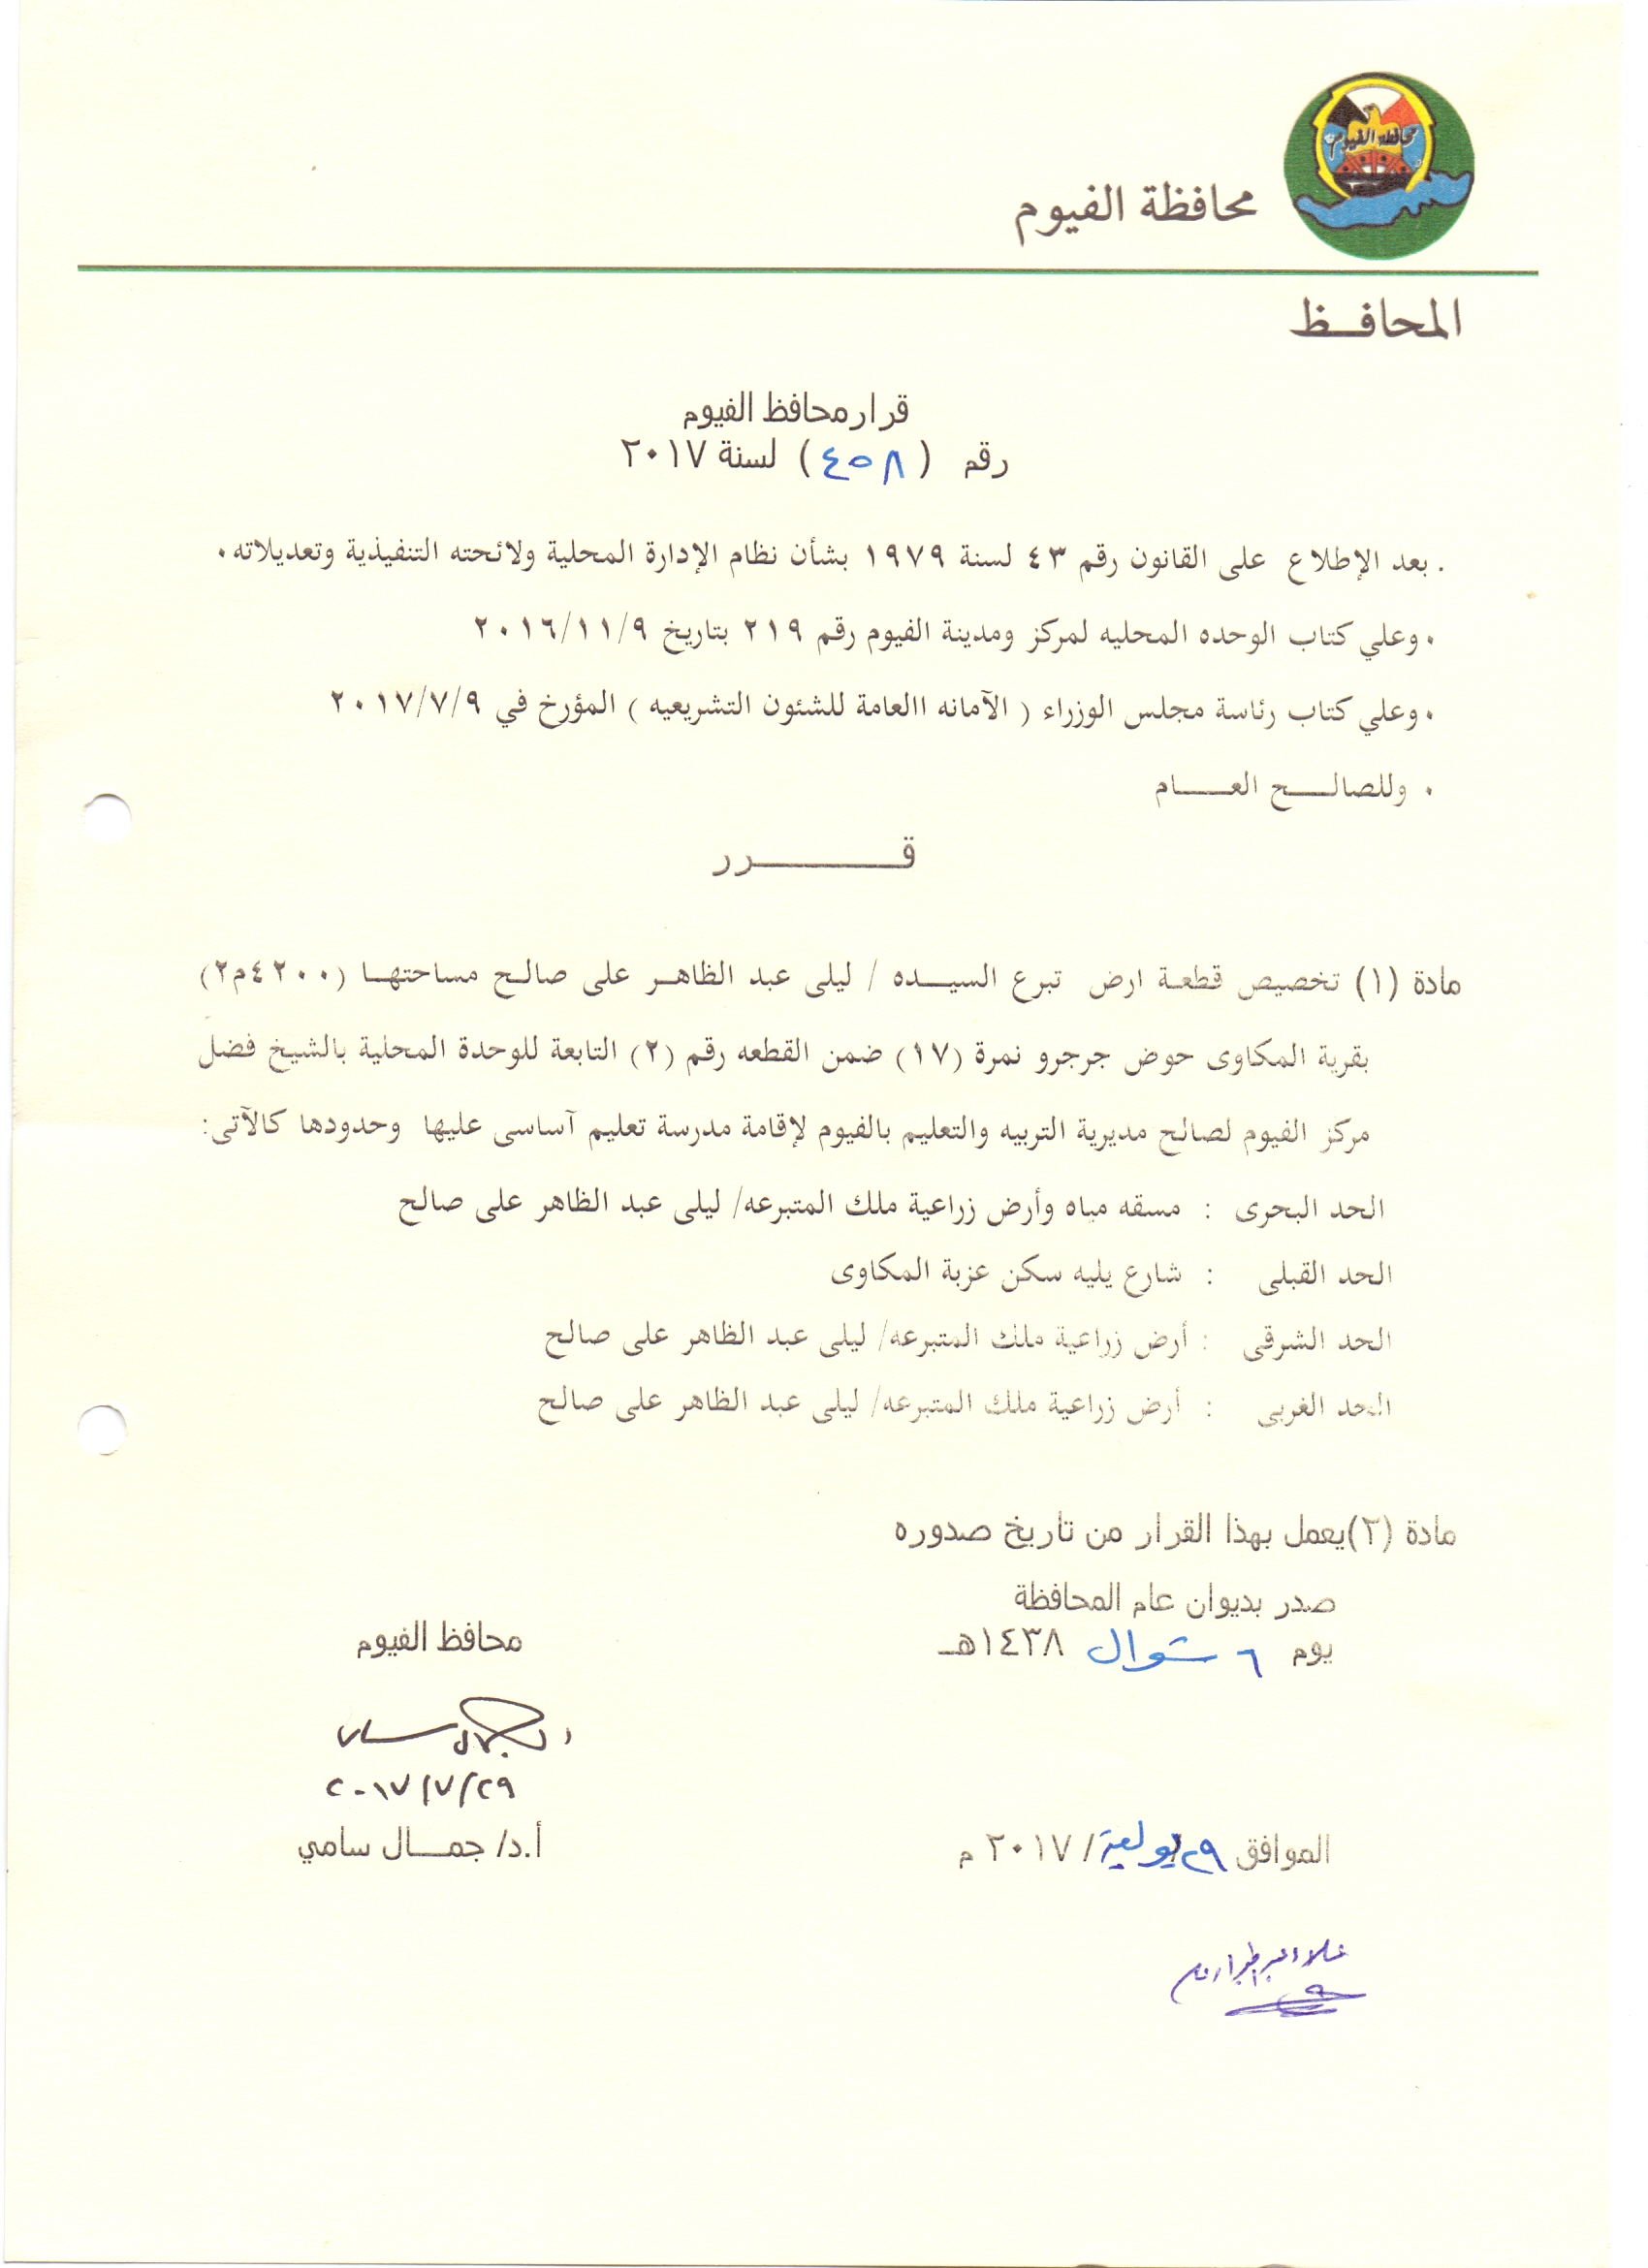 محافظة الفيوم
محافظة الفيوم
المحافــظ
قرار محافظ الفيوم
رقم ( ٤٥٨ ) لسنة ٢٠١٧
. بعد الإطلاع على القانون رقم ٤٣ لسنة ١٩٧٩ بشأن نظام الإدارة المحلية ولائحته التنفيذية وتعديلاته٠
٠ وعلي كتاب الوحده المحليه لمركز ومدينة الفيوم رقم ٢١٩ بتاريخ ٢٠١٦/١١/٩
٠ وعلي كتاب رئاسة مجلس الوزراء ( الآمانه االعامة للشئون التشريعيه ) المؤرخ في ٢٠١٧/٧/٩
٠ وللصالــــح العــــام
قـــــــــرر
مادة (١) تخصيص قطعة ارض تبرع السيـــده / ليلى عبد الظاهـر على صالـح مساحتهـا (٤٢٠٠م٢)
بقرية المكاوى حوض جرجرو نمرة (١٧) ضمن القطعه رقم (٢) التابعة للوحدة المحلية بالشيخ فضل
مركز الفيوم لصالح مديرية التربيه والتعليم بالفيوم لإقامة مدرسة تعليم آساسى عليها وحدودها كالآتى:
الحد البحرى : مسقه مياه وأرض زراعية ملك المتبرعه/ ليلى عبد الظاهر على صالح
الحد القبلى : شارع يليه سكن عزبة المكاوى
الحد الشرقى : أرض زراعية ملك المتبرعه/ ليلى عبد الظاهر على صالح
الحد الغربى : أرض زراعية ملك المتبرعه/ ليلى عبد الظاهر على صالح
مادة (٢) يعمل بهذا القرار من تاريخ صدوره
صدر بديوان عام المحافظة
يوم ٦ شوال ١٤٣٨هـ
محافظ الفيوم
٢٠١٧/٧/٢٩
أ.د/ جمـــال سامي
الموافق ٢٩ يولية/ ٢٠١٧ م